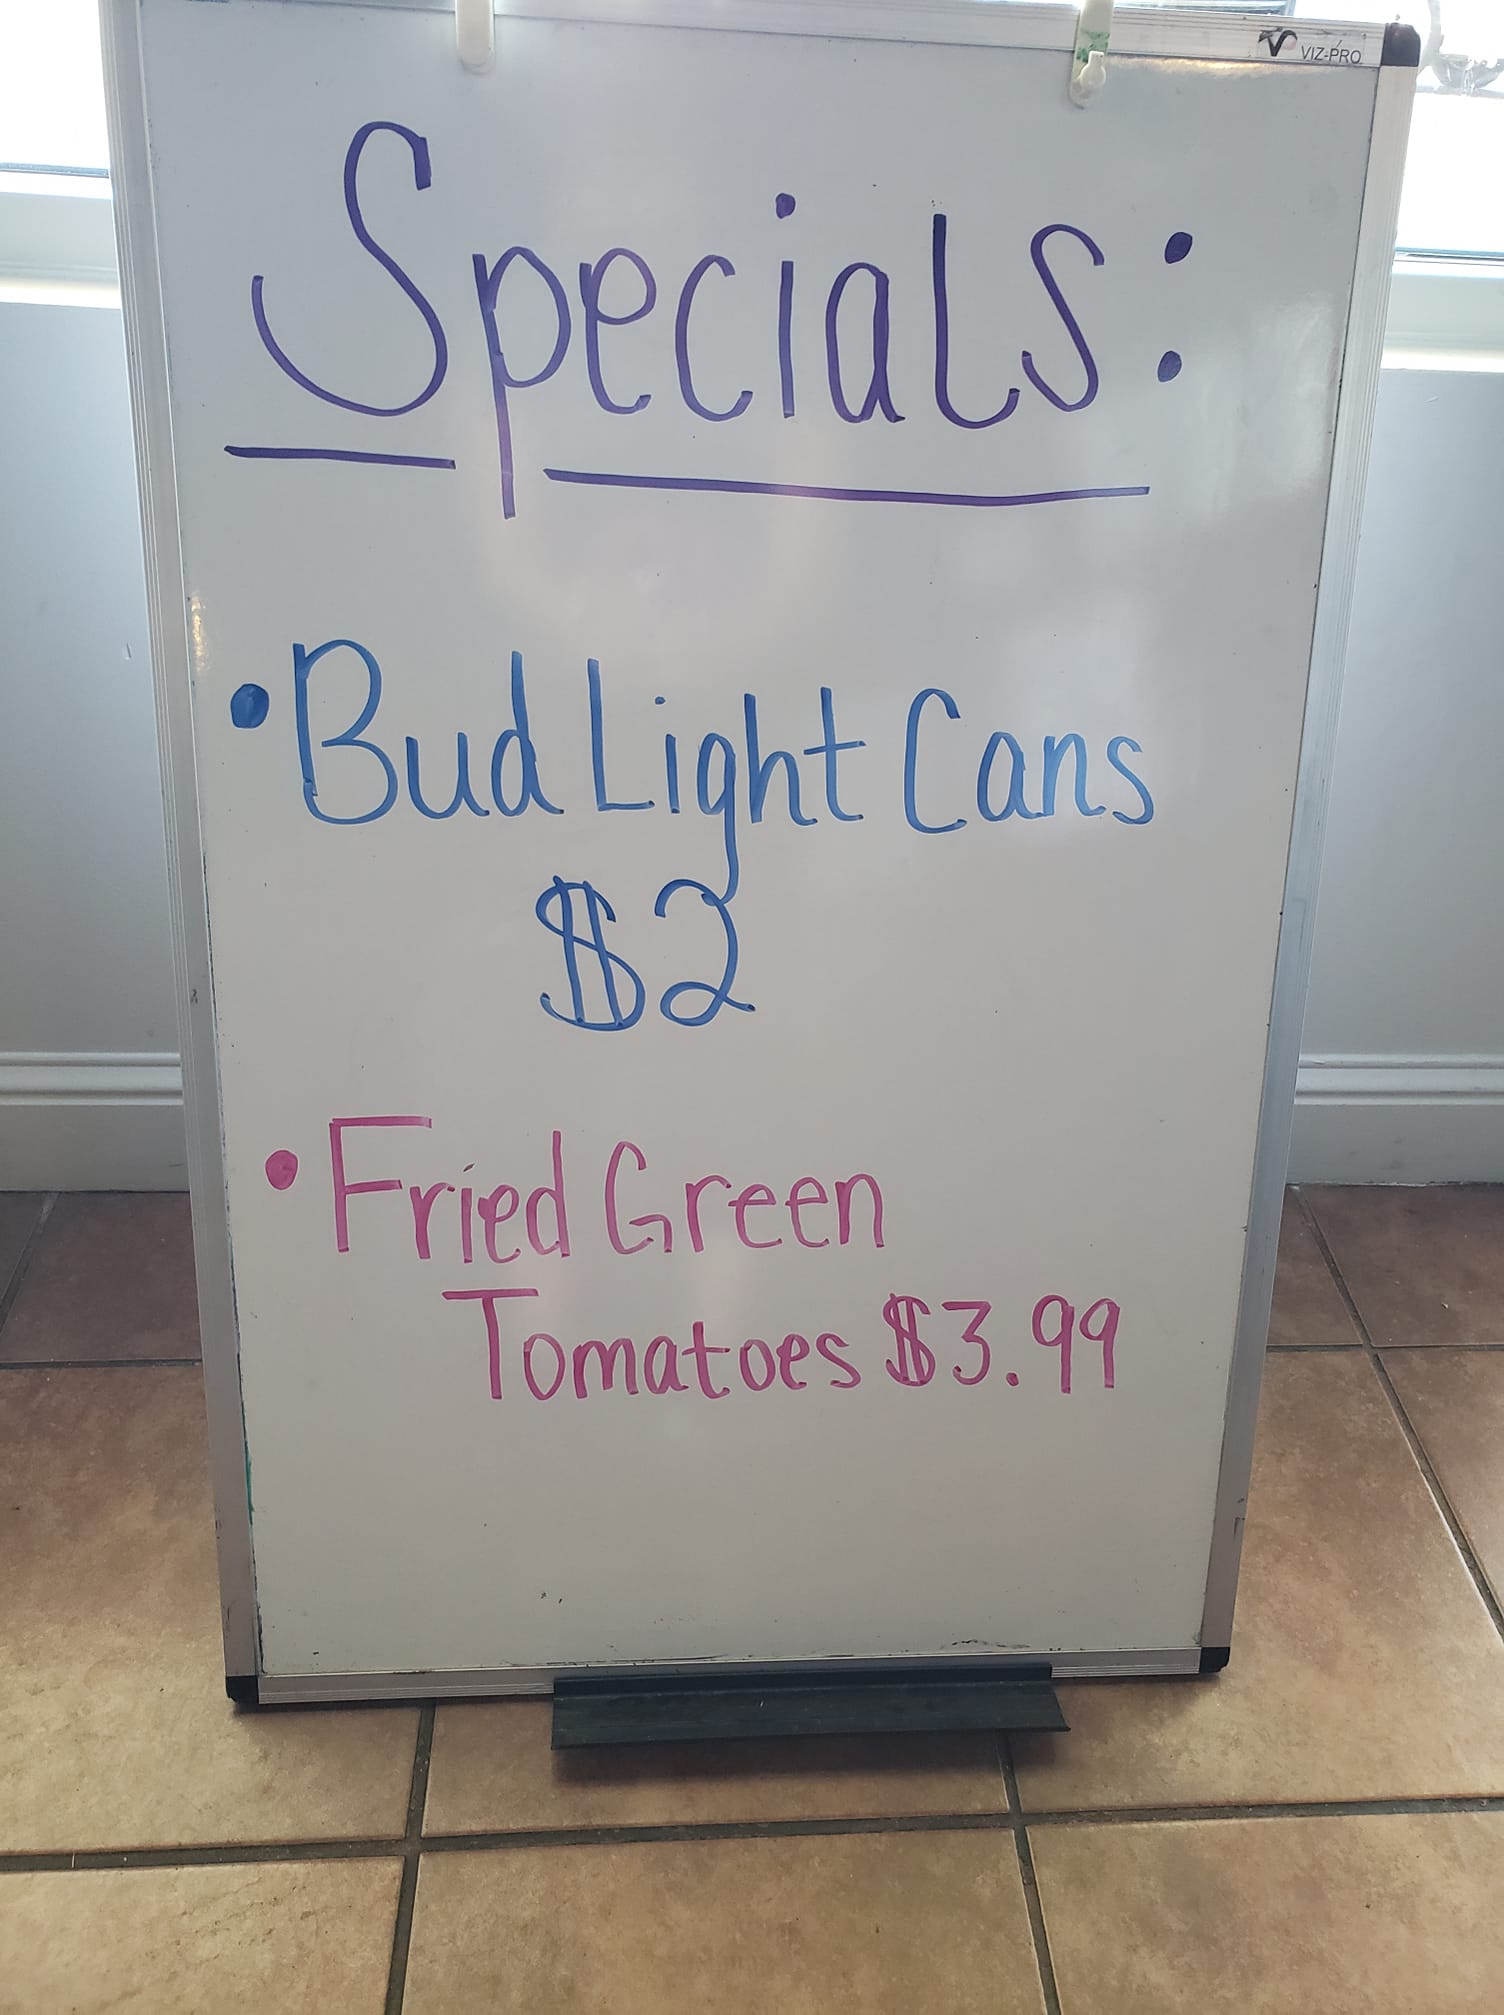 VIZ-PRO
Specials:
• Bud Light Cans
$2
• Fried Green
Tomatoes $3.99